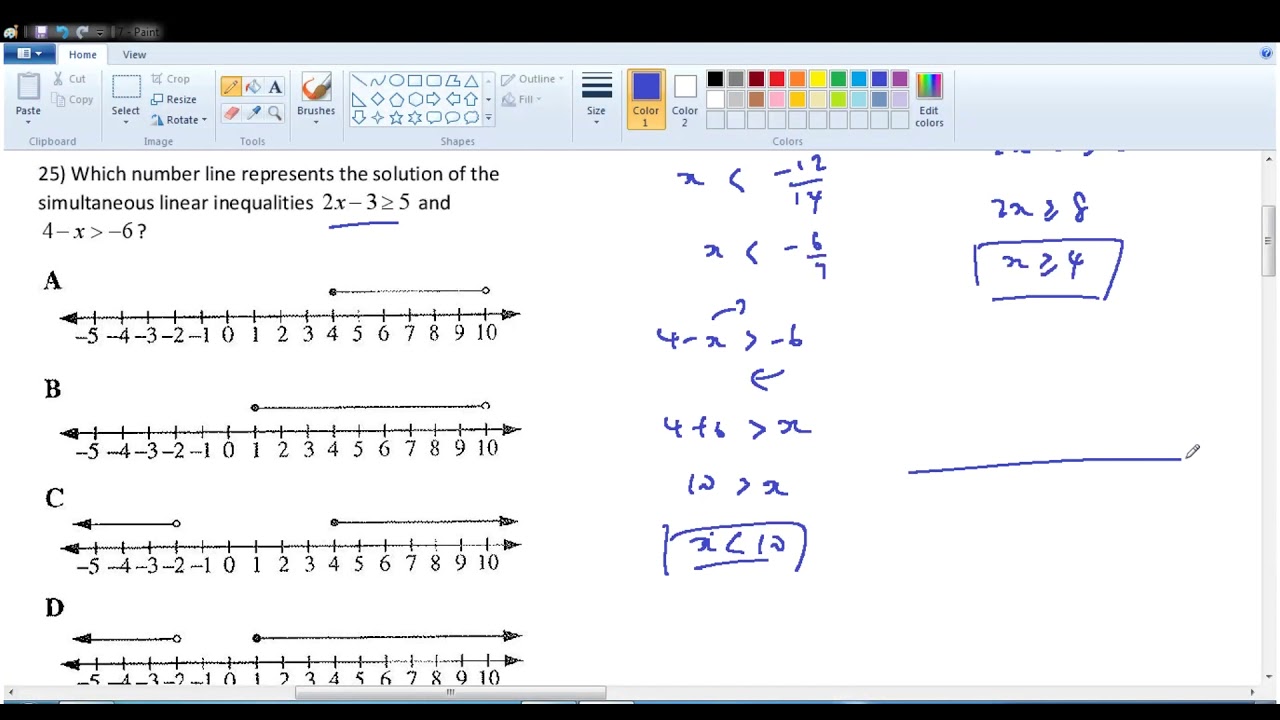 7 - Paint
Home View
Paste
Cut
Copy
Clipboard
Select
Crop
Resize
Rotate
Image
A
Tools
Brushes
Outline
Fill
Shapes
Size
Color 1
Color 2
Edit colors
Colors
25) Which number line represents the solution of the
simultaneous linear inequalities 2x − 3 ≥ 5 and
4 − x > −6 ?
A
−5 −4 −3 −2 −1 0 1 2 3 4 5 6 7 8 9 10
B
−5 −4 −3 −2 −1 0 1 2 3 4 5 6 7 8 9 10
C
−5 −4 −3 −2 −1 0 1 2 3 4 5 6 7 8 9 10
D
−5 −4 −3 −2 −1 0 1 2 3 4 5 6 7 8 9 10
x < −12/14
x < −6/7
4 − x > −6
4 + 6 > x
10 > x
x < 10
2x ≥ 8
x ≥ 4